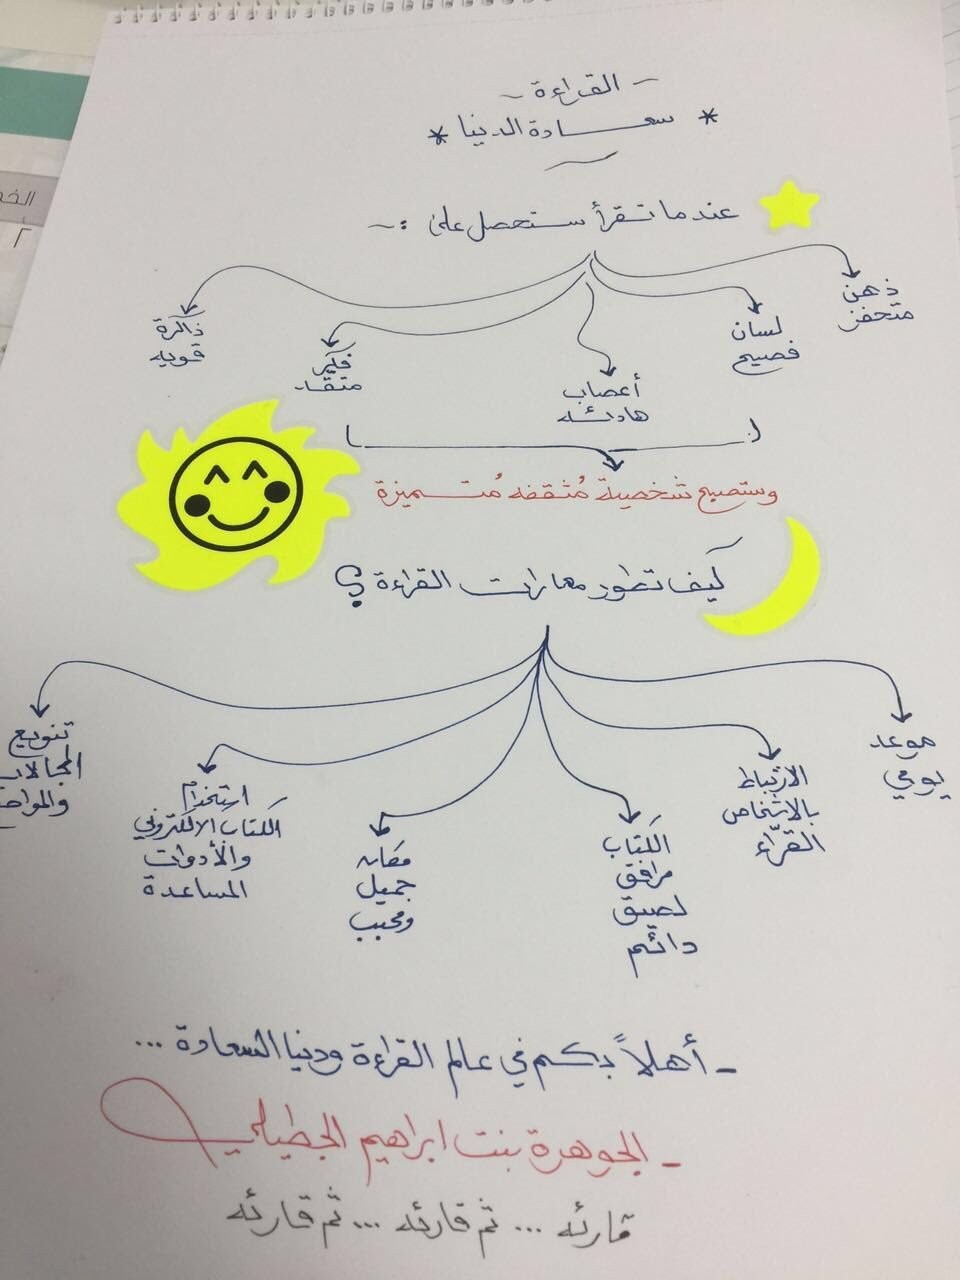 ~ القراءة ~
* سعادة الدنيا *
عندما تقرأ ستحصل على :~
ذهن
متحفز
لسان
فصيح
أعصاب
هادئه
فكر
متقد
ذاكرة
قويه
وستصبح شخصية مُثقفه مُتميزة
كيف تطور مهارات القراءة ؟
موعد
يومي
الارتباط
بالاشخاص
القرّاء
الكتاب
مرافق
لصيق
دائم
مكان
جميل
ومحبب
استخدام
الكتاب الالكتروني
والأدوات
المساعدة
تنويع
المجالات
- أهلاً بكم في عالم القراءة ودنيا السعادة ...
- الجوهرة بنت ابراهيم الجطيلي
قارئه ... ثم قارئه ... ثم قارئه